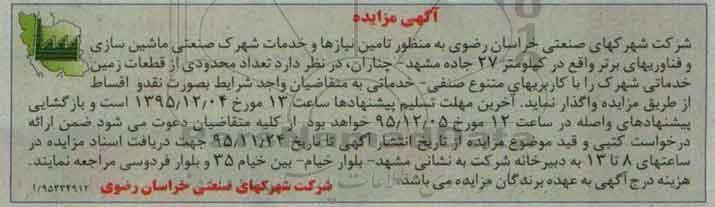 آگهی مزایده
شرکت شهرکهای صنعتی خراسان رضوی به منظور تامین نیازها و خدمات شهرک صنعتی ماشین سازی
و فناوریهای برتر واقع در کیلومتر ۲۷ جاده مشهد- چناران، در نظر دارد تعداد محدودی از قطعات زمین
خدماتی شهرک را با کاربریهای متنوع صنفی- خدماتی به متقاضیان واجد شرایط بصورت نقد و اقساط
از طریق مزایده واگذار نماید. آخرین مهلت تسلیم پیشنهادها ساعت ۱۳ مورخ ۱۳۹۵/۱۲/۰۴ است و بازگشایی
پیشنهادهای واصله در ساعت ۱۲ مورخ ۹۵/۱۲/۰۵ خواهد بود. از کلیه متقاضیان دعوت می شود ضمن ارائه
درخواست کتبی و قید موضوع مزایده از تاریخ انتشار آگهی تا تاریخ ۹۵/۱۱/۲۴ جهت دریافت اسناد مزایده در
ساعتهای ۸ تا ۱۳ به دبیرخانه شرکت به نشانی مشهد- بلوار خیام- بین خیام ۳۵ و بلوار فردوسی مراجعه نمایند.
هزینه درج آگهی به عهده برندگان مزایده می باشد.
شرکت شهرکهای صنعتی خراسان رضوی
۱/۹۵۳۳۴۹۱۲